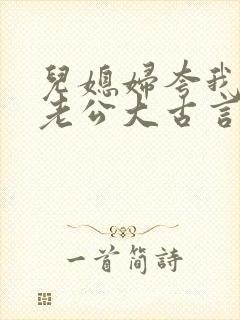 兒媳婦夸我
老公大古言
一首簡詩